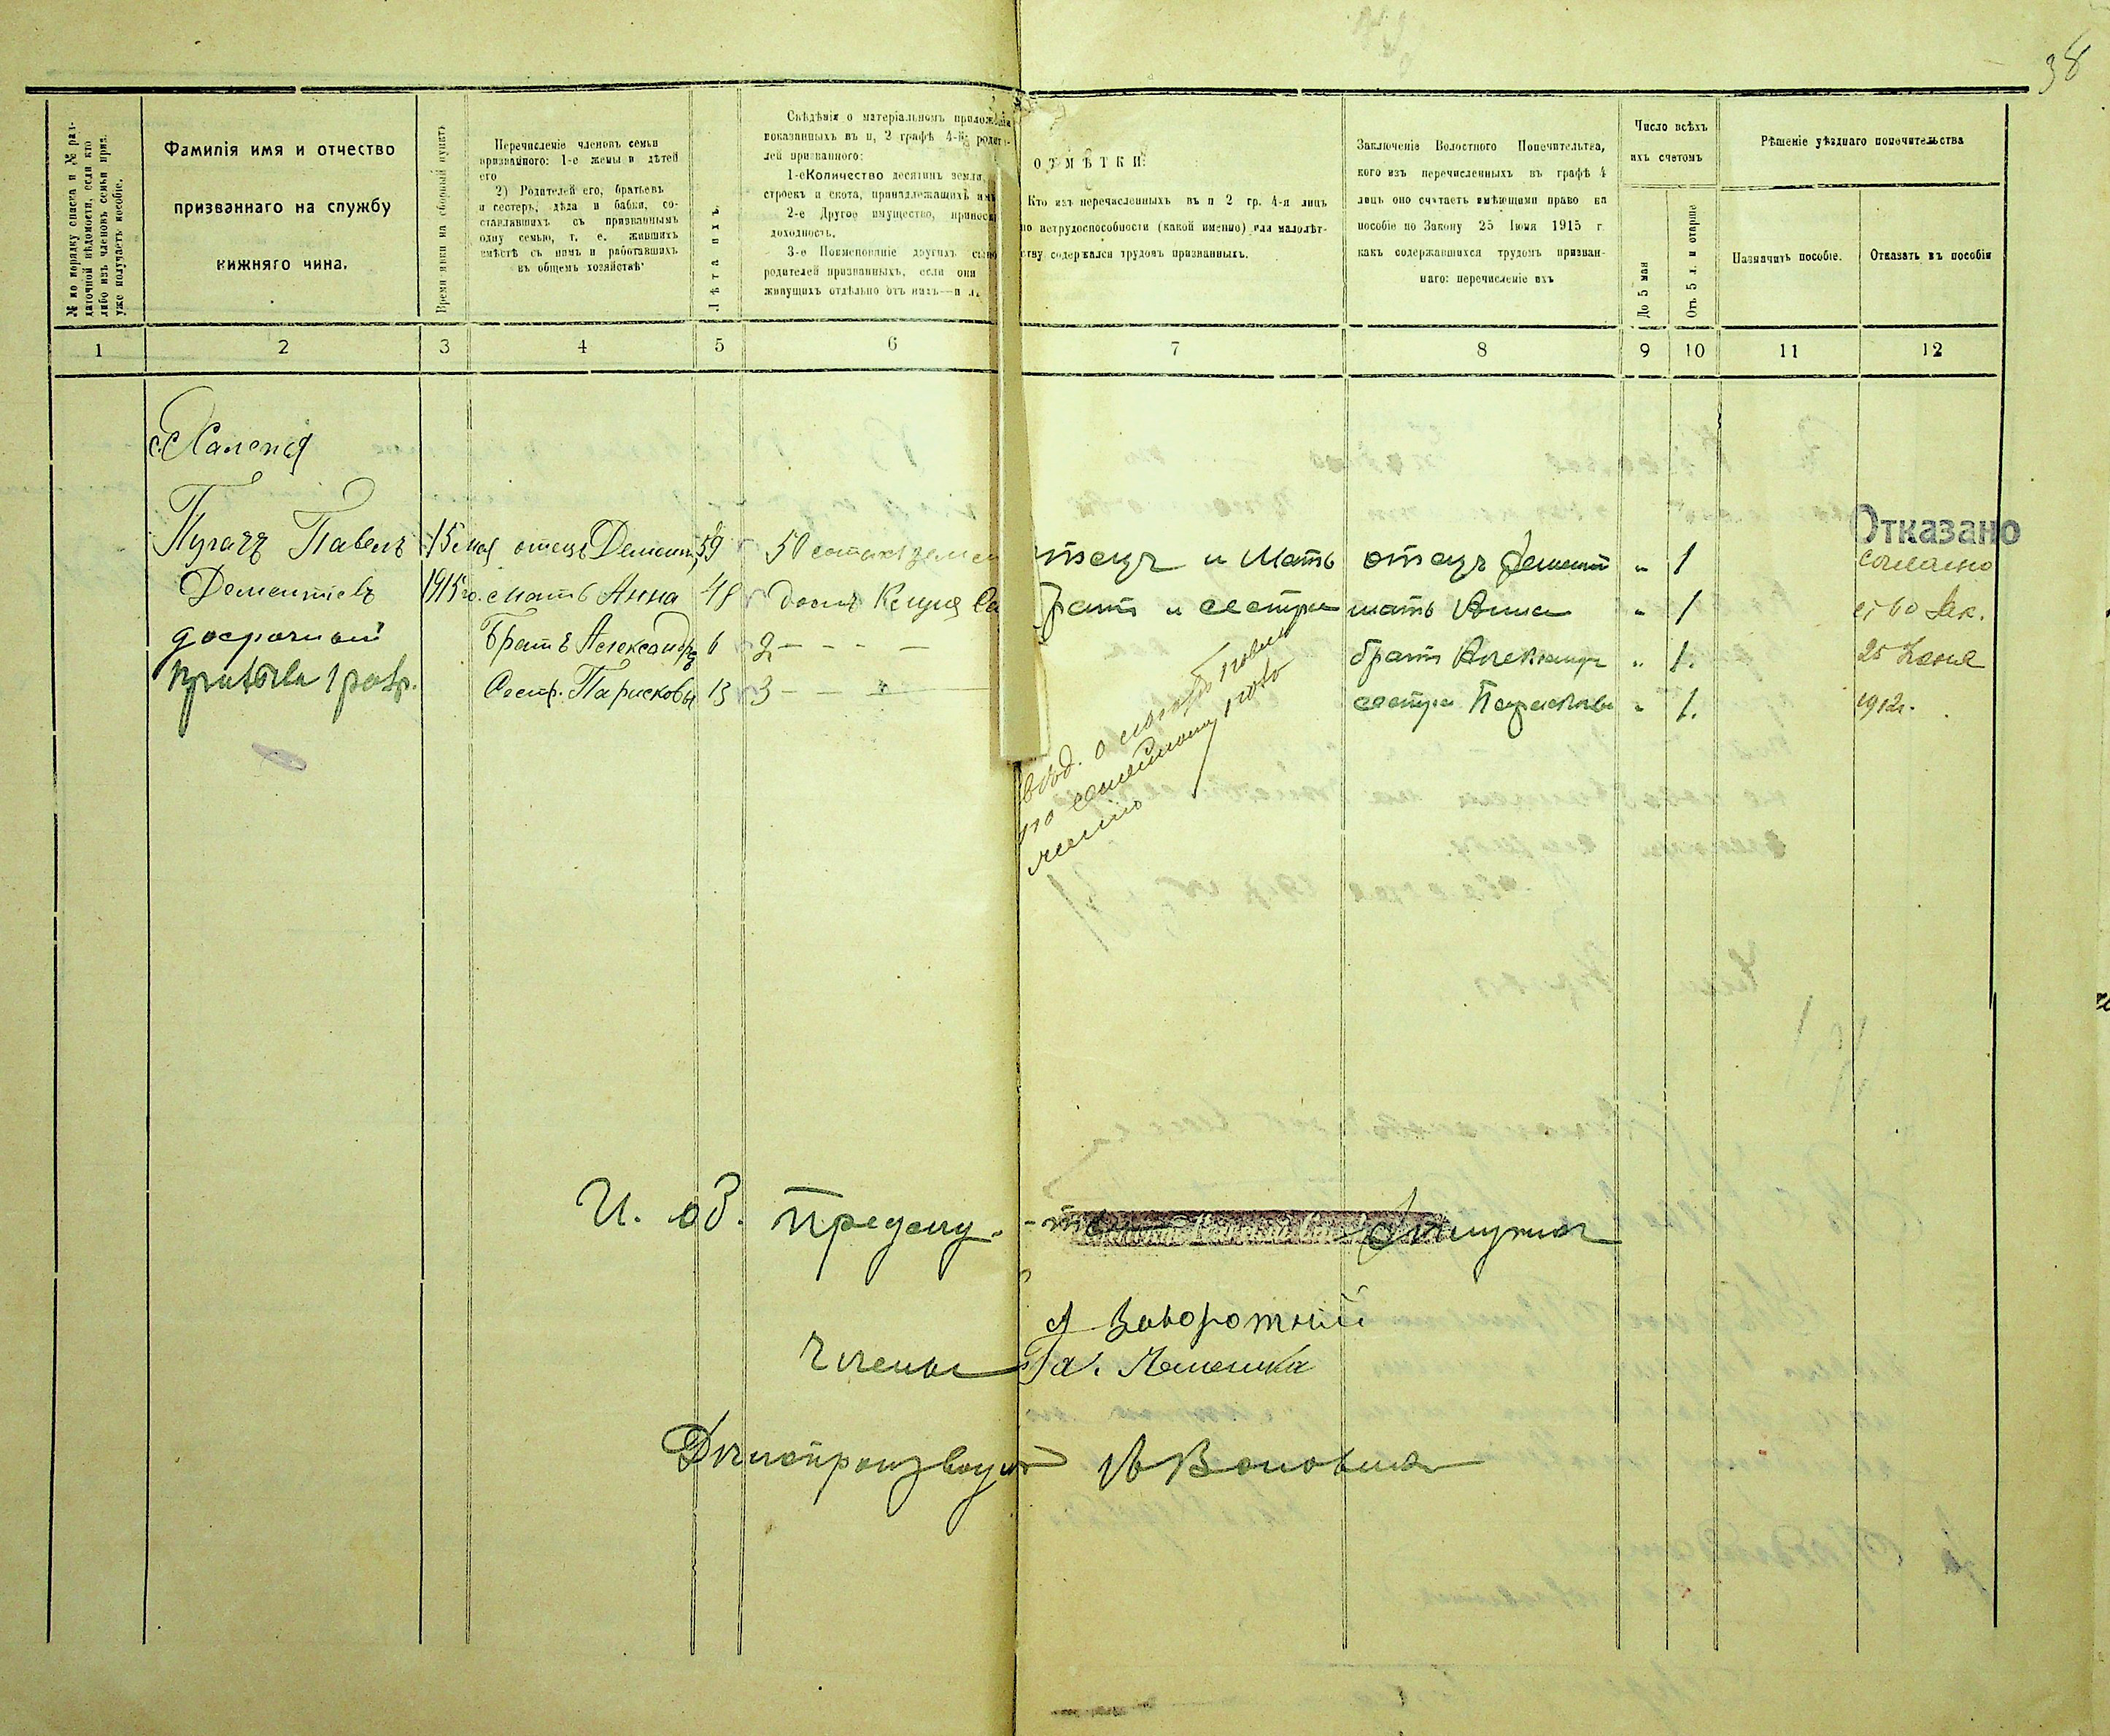 38
№ по порядку списка и № раз-
даточной вѣдомости, если кто
либо изъ членовъ семьи приз.
уже получаетъ пособіе.
Фамилія имя и отчество
призваннаго на службу
нижняго чина.
Время явки на сборный пунктъ
Перечисленіе членовъ семьи
призваннаго: 1-е жены и дѣтей
его
2) Родителей его, братьевъ
и сестеръ, дѣда и бабки, со-
ставлявшихъ съ призваннымъ
одну семью, т. е. жившихъ
вмѣстѣ съ нимъ и работавшихъ
въ общемъ хозяйствѣ
Лѣта ихъ.
Свѣдѣнія о матеріальномъ положеніи
показанныхъ въ п, 2 графѣ 4-й родите-
лей призваннаго:
1-е Количество десятинъ земли,
строекъ и скота, принадлежащихъ имъ
2-е Другое имущество, принося
доходность.
3-е Поименованіе другихъ сыно
родителей призванныхъ, если они
живущихъ отдѣльно отъ нихъ—п л
ОТМѢТКИ:
Кто изъ перечисленныхъ въ п 2 гр. 4-я лицъ
по нетрудоспособности (какой именно) или малолѣт-
ству содержался трудовъ призванныхъ.
Заключеніе Волостного Попечительтва,
кого изъ перечисленныхъ въ графѣ 4
лицъ оно считаетъ имѣющими право на
пособіе по Закону 25 Іюня 1915 г
какъ содержавшихся трудомъ призван-
наго: перечисленіе ихъ
Число всѣхъ
ихъ счетомъ
До 5 мая
Отъ 5 л. и старше
Рѣшеніе уѣзднаго попечительства
Назначить пособіе.
Отказать въ пособіи
1 2 3 4 5 6 7 8 9 10 11 12
с Халепья
Пугачъ Павелъ 15 мая отецъ Демент. 59 50 сотокъ земли отецъ и Мать отецъ Демент „ 1 Отказано согласно
Дементіевъ 1915 г. мать Анна 48 домъ Клуня Са братъ и сестра мать Анна „ 1 ст 60 Зак.
досрочный Братъ Александръ 6 2 - - - - братъ Александръ „ 1. 25 Іюня
призыва 1 разр. Сестр. Парасковья 13 3 - - - сестра Парасковья „ 1. 1912 г.
по семейному
И. об. Предсѣд. -теля
А Заворотній
Члены
Дѣлопроизводит